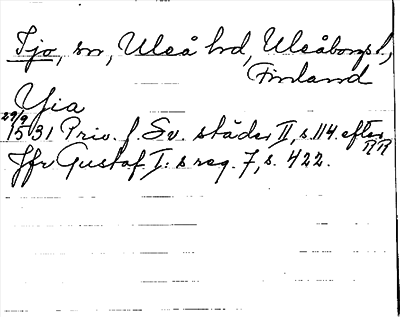 Ijo, sn, Uleå hd, Uleåborgs l.,
Finland
Yia
29/9
1531 Priv. f. Sv. städer II, s. 114. efter
RR
Jfr Gustaf I:s reg. 7, s. 422.